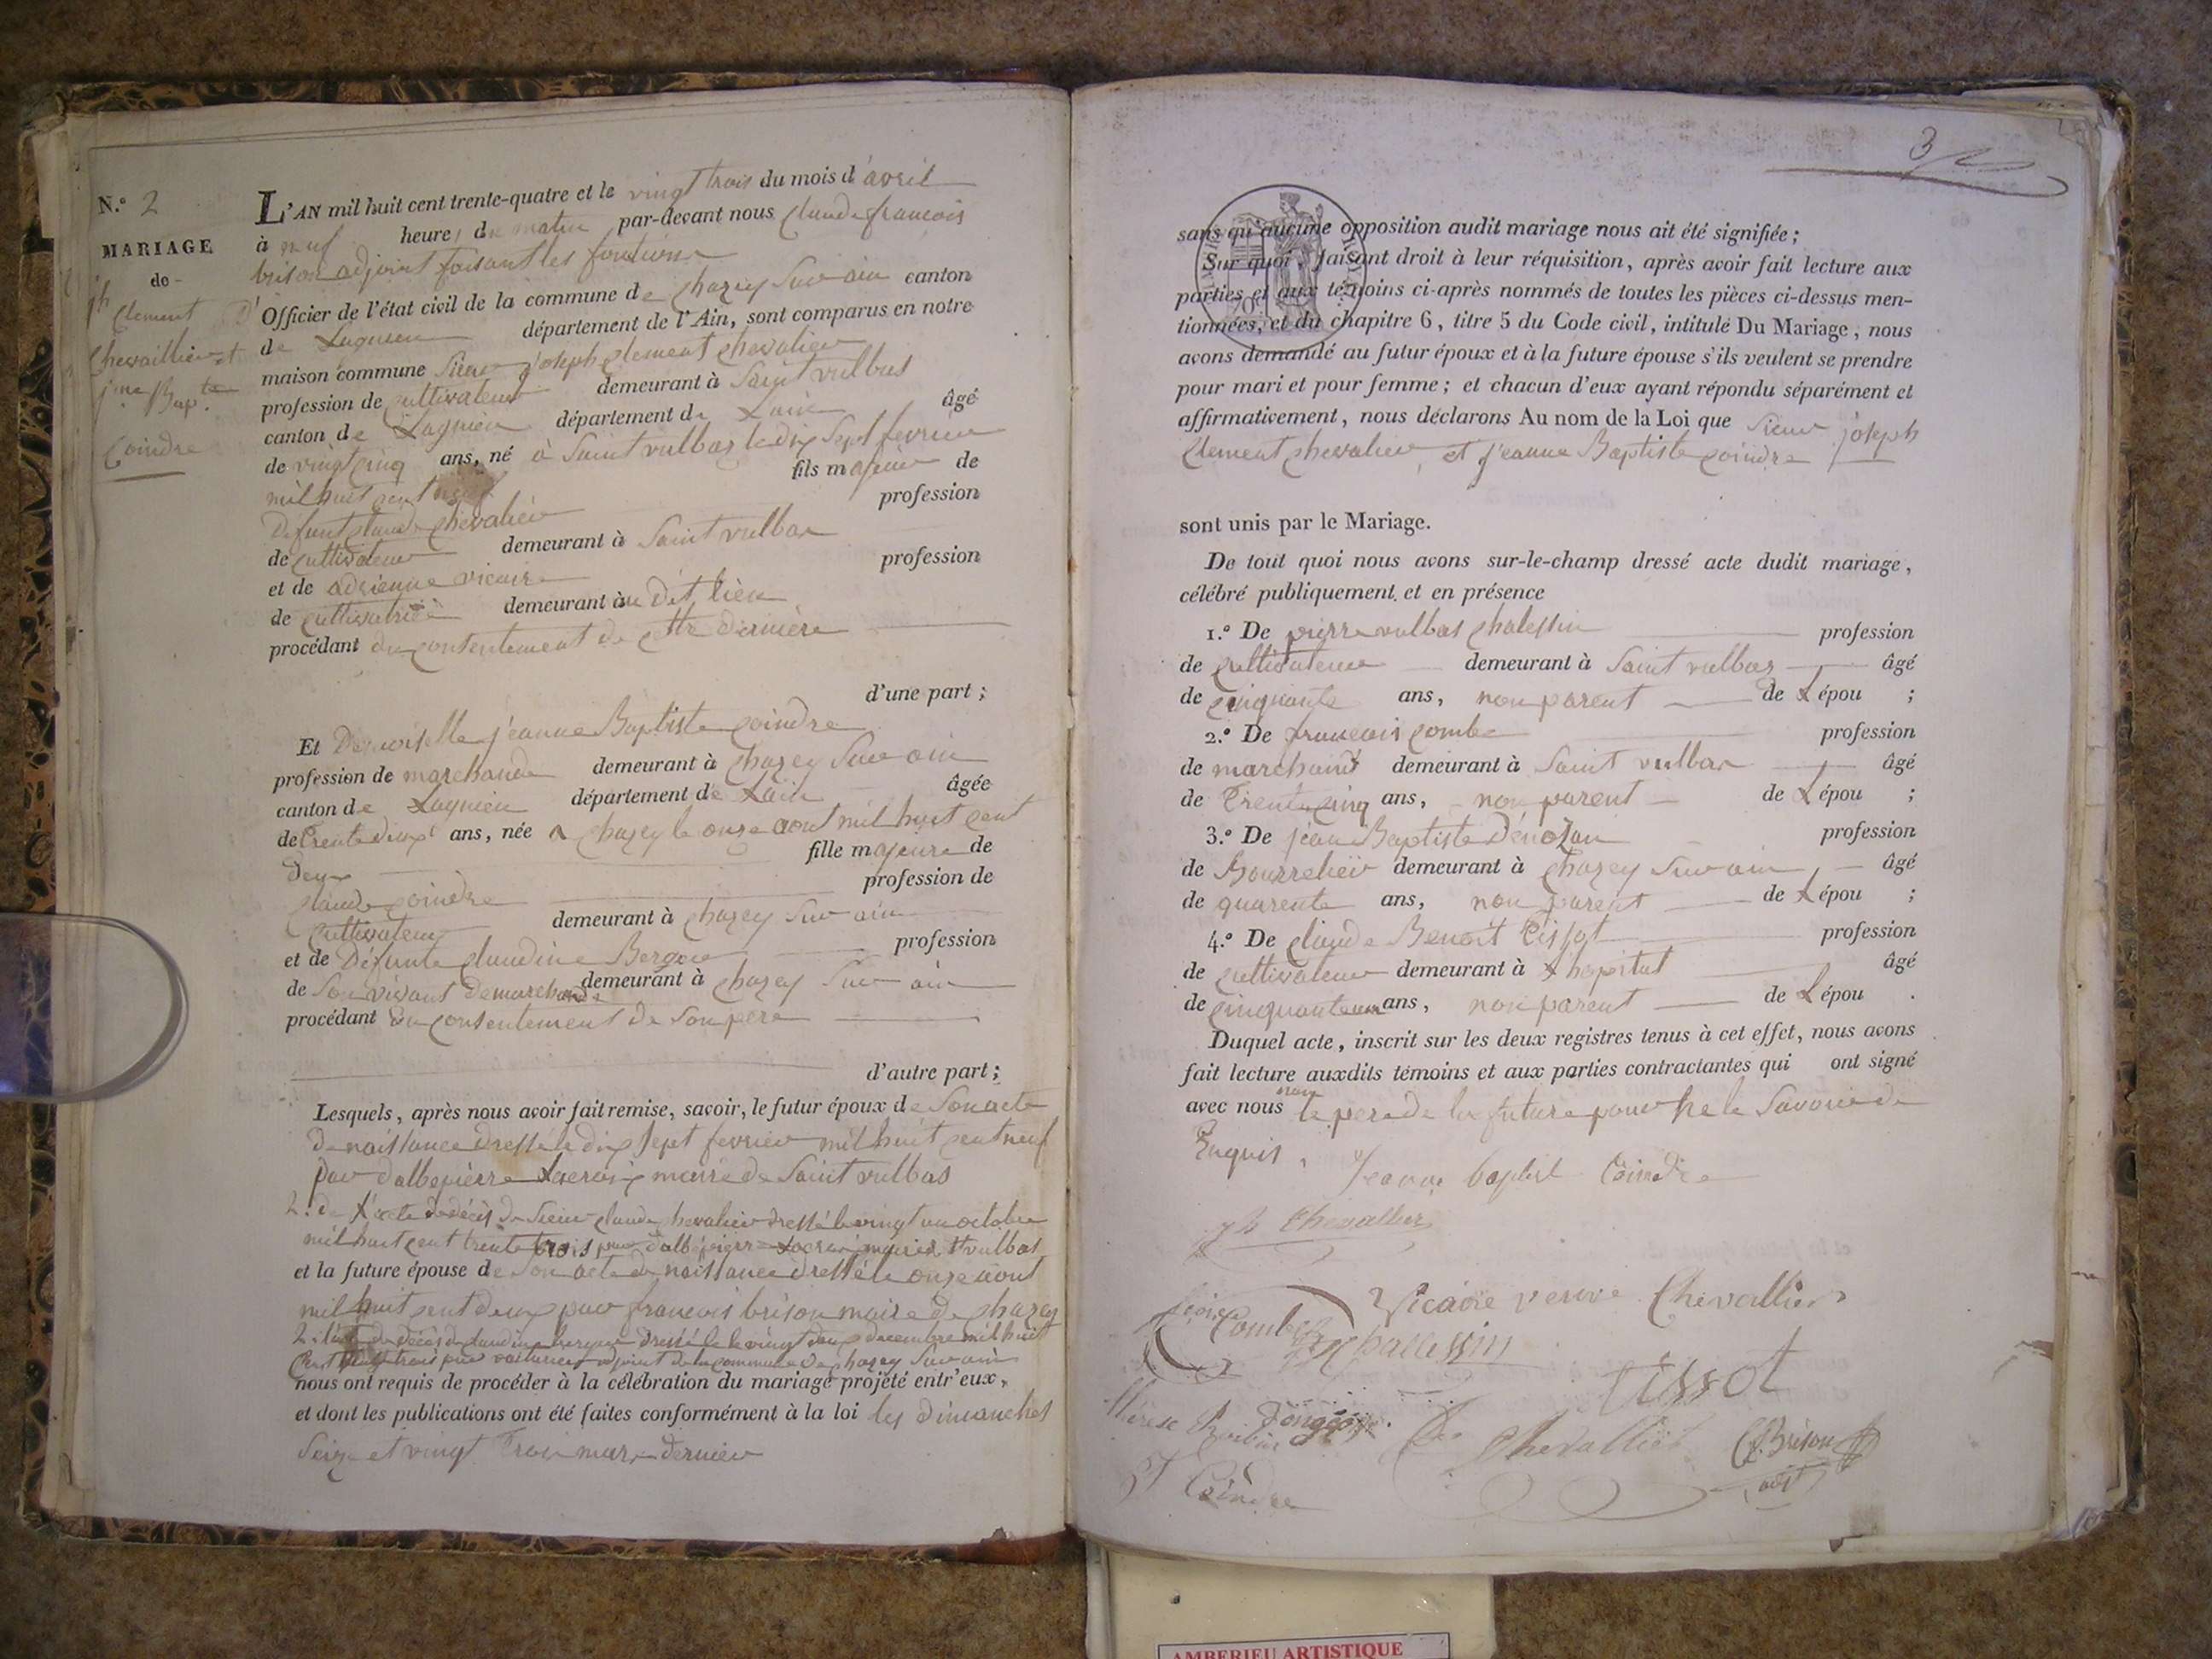 N.° 2
MARIAGE
de
jh
Clement
Chevaillier et
jne Bapte
Coindre
L'AN mil huit cent trente-quatre et le vingt trois du mois d'avril
à neuf heures du matin par-devant nous Claude françois
brison adjoint faisant les fonctions
D'Officier de l'état civil de la commune de chazey Sur ain canton
de Lagnieu département de l'Ain, sont comparus en notre
maison commune Sieur joseph Clement chevalier
profession de Cultivateur demeurant à Saint vulbas
canton de Lagnieu département de Lain âgé
de vingt cinq ans, né à Saint vulbas le dix Sept fevrier
mil huit cent neuf fils majeur de
Defunt Claude chevalier profession
de Cultivateur demeurant à Saint vulbas
et de adrienne vicaire profession
de Cultivatrice demeurant au Dit lieu
procédant du Consentement de cette Dernière
d'une part ;
Et Demoiselle jeanne Baptiste Coindre
profession de marchande demeurant à chazey Sur ain
canton de Lagnieu département de Lain âgée
de trente deux ans, née a chazey le onze aout mil huit cent
Deux fille majeure de
Claude Coindre profession de
Cultivateur demeurant à chazey Sur ain
et de Defunte Claudine Berger profession
de Son vivant De marchande demeurant à chazey Sur ain
procédant Du Consentement de Son pere
d'autre part ;
Lesquels, après nous avoir fait remise, savoir, le futur époux de Son acte
De naissance dressé le dix Sept fevrier mil huit cent neuf
par dalbepierre Lacroix maire de Saint vulbas
2.° de L'acte de décès de Sieur Claude chevalier dressé le vingt un octobre
mil huit cent trente trois par dalbepierre Lacroix maire de St vulbas
et la future épouse de Son acte de naissance dressé le onze aout
mil huit cent deux par francois brison maire de chazey
2. L'acte de décès de Claudine berger dressé le vingt deux decembre mil huit
Cent trois par adjoint de la commune de chazey Sur ain
nous ont requis de procéder à la célébration du mariage projeté entr'eux,
et dont les publications ont été faites conformément à la loi les dimanches
Seize et vingt Trois mars dernier
3
sans qu'aucune opposition audit mariage nous ait été signifiée ;
Sur quoi, faisant droit à leur réquisition, après avoir fait lecture aux
parties et aux témoins ci-après nommés de toutes les pièces ci-dessus men-
tionnées, et du chapitre 6, titre 5 du Code civil, intitulé Du Mariage, nous
avons demandé au futur époux et à la future épouse s'ils veulent se prendre
pour mari et pour femme ; et chacun d'eux ayant répondu séparément et
affirmativement, nous déclarons Au nom de la Loi que Sieur joseph
Clement chevalier et jeanne Baptiste Coindre
sont unis par le Mariage.
De tout quoi nous avons sur-le-champ dressé acte dudit mariage,
célébré publiquement et en présence
1.° De pierre vulbas Chalessin profession
de Cultivateur demeurant à Saint vulbas âgé
de Cinquante ans, non parent de L épou ;
2.° De francois Combe profession
de marchand demeurant à Saint vulbas âgé
de Trente cinq ans, non parent de L épou ;
3.° De jean Baptiste Dénozan profession
de Bourrelier demeurant à chazey Sur ain âgé
de quarente ans, non parent de L épou ;
4.° De Claude Benoit Tissot profession
de Cultivateur demeurant à Lhopital âgé
de Cinquante un ans, non parent de L épou .
Duquel acte, inscrit sur les deux registres tenus à cet effet, nous avons
fait lecture auxdits témoins et aux parties contractantes qui ont signé
avec nous non le pere de la future pour ne le Savoir de
Enquis,
Jeanne baptist Coindre
jh Chevallier
Vicaire veuve Chevallier
Combe
Chalessin
Tissot
Chevallier
C. f. Brison
adjt
Coindre
AMBERIEU ARTISTIQUE